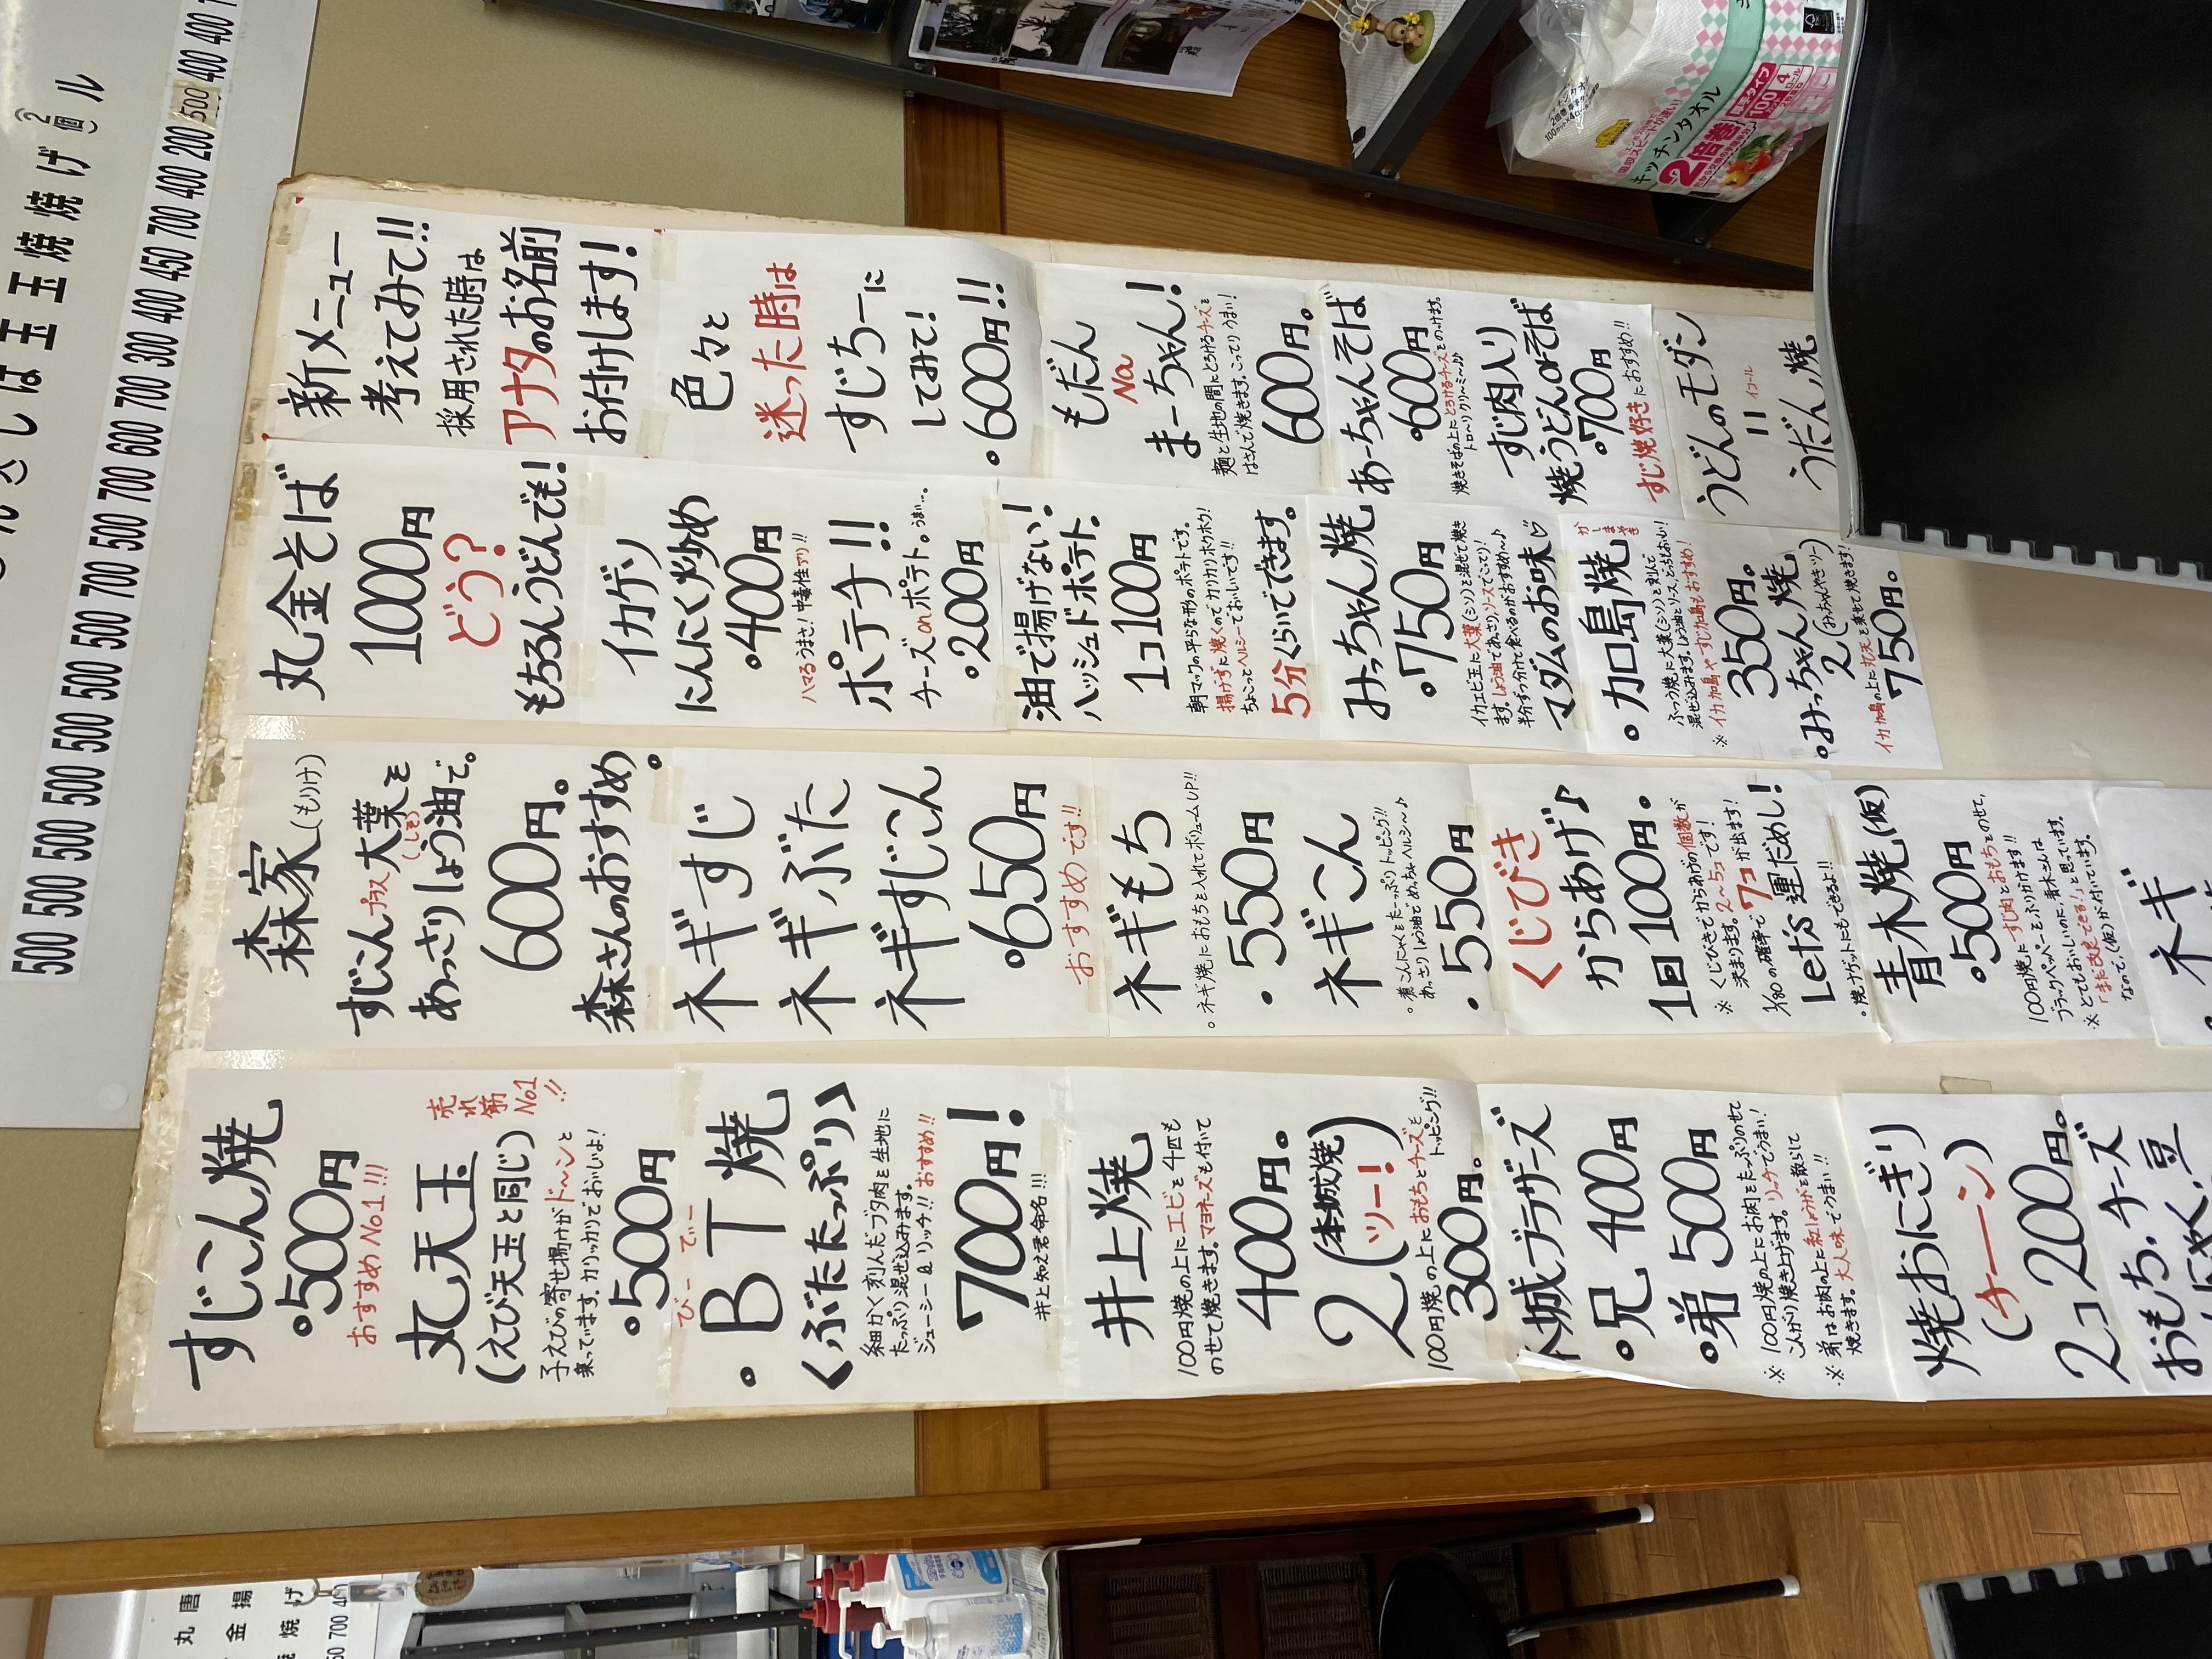 んさしは玉玉焼焼げ(2個)ル
500 500 500 500 500 500 500 700 500 700 600 700 300 400 450 700 400 200 500 400 400
丸唐
金揚
焼げ
700
すじこん焼
500円
おすすめNo1!!!
丸天玉
(えび天玉と同じ)
売れ筋No1!!
子えびの寄せ揚げがド〜ンと
乗っています。カリッカリでおいしいよ!
500円
びー でー
BT焼
くぶたたっぷり>
細かく刻んだブタ肉を生地に
たっぷり混ぜ込みます。
ジューシー&リッチ!! おすすめ!!
700円!
井上知え君命名!!!
井上焼
100円焼の上にエビを4匹も
のせて焼きます。マヨネーズも付いて
400円。
2(本城焼ツー!)
100円焼の上におもちとチーズを
トッピング!!
300円。
本城ブラザーズ
兄 400円
弟 500円
※ 100円焼の上にお肉をたっぷりのせて
こんがり焼き上げます。リッチでうまい!
※ 弟はお肉の上に紅しょうがを散らして
焼きます。大人味でうまい!!
焼おにぎり
(チーン)
2コ200円。
おもち、チーズ
豆
森家(もりけ)
すじこんプラス大葉を
(しそ)
あっさりしょう油で。
600円。
森さんのおすすめ。
ネギすじ
ネギぶた
ネギすじこん
650円
おすすめです!!
ネギもち
ネギ焼におもちを入れてボリュームUP!!
550円
ネギこん
煮こんにゃくをたーっぷりトッピング!!
あっさりしょう油でめっちゃヘルシ〜♪
550円
くじびき
からあげ♪
1回100円。
※ くじびきでからあげの個数が
決まります。2〜5コです!
1/80の確率で7コが出ます!
Let's運だめし!
・焼ナゲットにもできるよ!!
青木焼(仮)
500円
100円焼にすじ肉とおもちをのせて、
ブラックペッパーをふりかけます!!
※ とてもおいしいのに、青木さんは
「まだ改良できる!」と思っています。
なので、(仮)が付いています。
ネギ
丸金そば
1000円
どう?
もちろんうどんでも!
イカゲソ
にんにく炒め
400円
ハマるうまさ!中毒性アリ!!
ポテチ!!
チーズonポテト。うまい…。
200円
油で揚げない!
ハッシュドポテト。
1コ100円
朝マックの平らな形のポテトです。
揚げずに焼くのでカリカリホクホク!
ちょこっとヘルシーでおいしいです!!
5分くらいでできます。
みっちゃん焼
750円
イカエビ玉に大葉(シソ)を混ぜて焼き
ます。しょう油であっさり、ソースでこってり!
半分ずつ分けて食べるのがおすすめ〜♪
マダムのお味♡
加島焼
かしまやき
ふつう焼に大葉(シソ)を刻んで
混ぜ込みます。しょう油とソース、どっちもおいしい!
※ イカ加島やすじ加島もおすすめ!
350円。
みっちゃん焼
2(みっちゃんやきツー)
イカ加島の上に丸天を乗せて焼きます!
750円。
新メニュー
考えてみて!!
採用された時は
アナタのお名前
お付けします!
色々と
迷った時は
すじちーに
してみて!
600円!!
もだん
No
まーちゃん!
麺と生地の間にとろけるチーズを
はさんで焼きます。こってりうまい!
600円。
あーちゃんそば
600円
焼きそばの上にとろけるチーズをのっけます。
トロ〜リクリ〜ミ〜♪♪
すじ肉入り
焼うどんorそば
700円
すじ焼好きにおすすめ!!
うどんのモダン
=イコール
うだん焼
キッチンタオル
2倍巻
100
4ロール